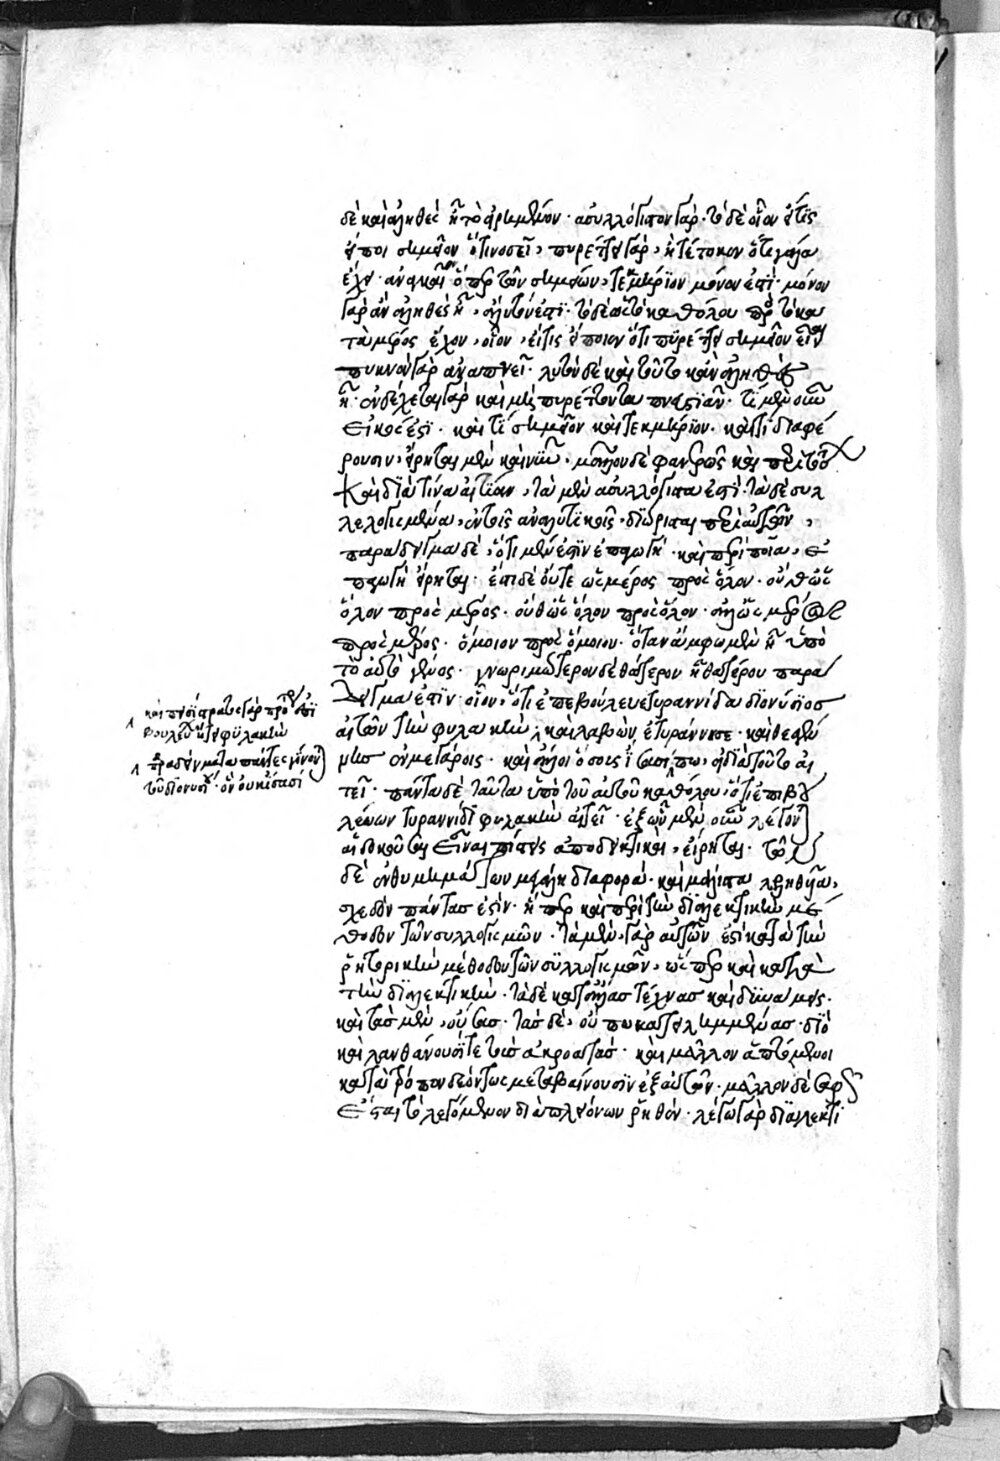 δὲ καὶ ἀληθὲς ᾖ τὸ εἰρημένον· ἀσυλλόγιστον γάρ· τὸ δὲ οἷον εἴ τις
εἴποι σημεῖον ὅτι νοσεῖ, πυρέττει γάρ, ἢ τέτοκεν ὅτι γάλα
ἔχει· ἀναγκαῖον ὅπερ τῶν σημείων, τεκμήριον μόνον ἐστί· μόνον
γὰρ ἂν ἀληθὲς ᾖ, ἄλυτόν ἐστι· τὸ δὲ ὡς τὸ καθόλου πρὸς τὸ κα
τὰ μέρος ἔχον, οἷον, εἴ τις εἴποιεν ὅτι πυρέττει σημεῖον εἶναι
πυκνὸν γὰρ ἀναπνεῖ· λυτὸν δὲ καὶ τοῦτο κἂν ἀληθὲς
ᾖ· ἐνδέχεται γὰρ καὶ μὴ πυρέττοντα πνευστιᾶν· τί μὲν οὖν
εἰκός ἐστι· καὶ τί σημεῖον καὶ τεκμήριον· καὶ τί διαφέ
ρουσιν, εἴρηται μὲν καὶ νῦν· μᾶλλον δὲ φανερῶς καὶ περὶ τούτων
καὶ διὰ τίνα αἰτίαν, τὰ μὲν ἀσυλλόγιστα ἐστὶ· τὰ δὲ συλ
λελογισμένα, ἐν τοῖς ἀναλυτικοῖς· διώρισται περὶ αὐτῶν,
παράδειγμα δὲ, ὅτι μέν ἐστιν ἐπαγωγὴ· καὶ περὶ ποῖα, ἐ
παγωγὴ εἴρηται· ἔστι δὲ οὔτε ὡς μέρος πρὸς ὅλον· οὔθ' ὡς
ὅλον πρὸς μέρος· οὔθ' ὡς ὅλον πρὸς ὅλον· ἀλλ' ὡς μέρος
πρὸς μέρος· ὅμοιον πρὸς ὅμοιον· ὅταν ἄμφω μὲν ᾖ ὑπὸ
τὸ αὐτὸ γένος· γνωριμώτερον δὲ θάτερον ᾖ θατέρου παρά
δειγμα ἐστὶν· οἷον, ὅτι ἐπεβούλευε τυραννίδα διονύσιος
αἰτῶν τὴν φυλακὴν, καὶ λαβὼν ἐτυράννησε· καὶ θεαγέ
νης ἐν μεγάροις· καὶ ἄλλοι ὅσους ἴσασί, πω, εἰ διὰ τοῦτο αἰ
τεῖ· πάντα δὲ ταῦτα ὑπὸ τοῦ αὐτοῦ καθόλου, ὅτι ἐπιβου
λεύων τυραννίδι φυλακὴν αἰτεῖ· ἐξ ὧν μὲν οὖν λέγονται
αἱ δοκοῦσαι εἶναι πίστεις ἀποδεικτικαί, εἴρηται· τῶν
δὲ ἐνθυμημάτων μεγάλη διαφορά· καὶ μάλιστα λεληθυῖα,
σχεδὸν πάντας ἐστὶν· ἥπερ καὶ περὶ τὴν διαλεκτικὴν μέ
θοδον τῶν συλλογισμῶν· τὰ μὲν γὰρ αὐτῶν ἐστὶ κατὰ τὴν
ῥητορικὴν μέθοδον τῶν συλλογισμῶν, ὥσπερ καὶ κατὰ
τὴν διαλεκτικὴν· τὰ δὲ κατ' ἄλλας τέχνας καὶ δυνάμεις·
καὶ τὰς μὲν, οὔσας· τὰς δὲ, οὔπω κατειλημμένας· διὸ
καὶ λανθάνουσί τε τοὺς ἀκροατάς· καὶ μᾶλλον ἁπτόμενοι
κατὰ τρόπον δεόντως μεταβαίνουσιν ἐξ αὐτῶν· μᾶλλον δὲ σαφὲς
ἔσται τὸ λεγόμενον διὰ πλειόνων ῥηθὲν· λέγω γὰρ διαλεκτι
καὶ πεισίστρατος γὰρ πρότερον ἐπι
βουλεύων ᾔτει φυλακὴν
παραδείγματα πάντες γίνονται
τοῦ διονυσίου· ὃν οὐκ ἴσασί